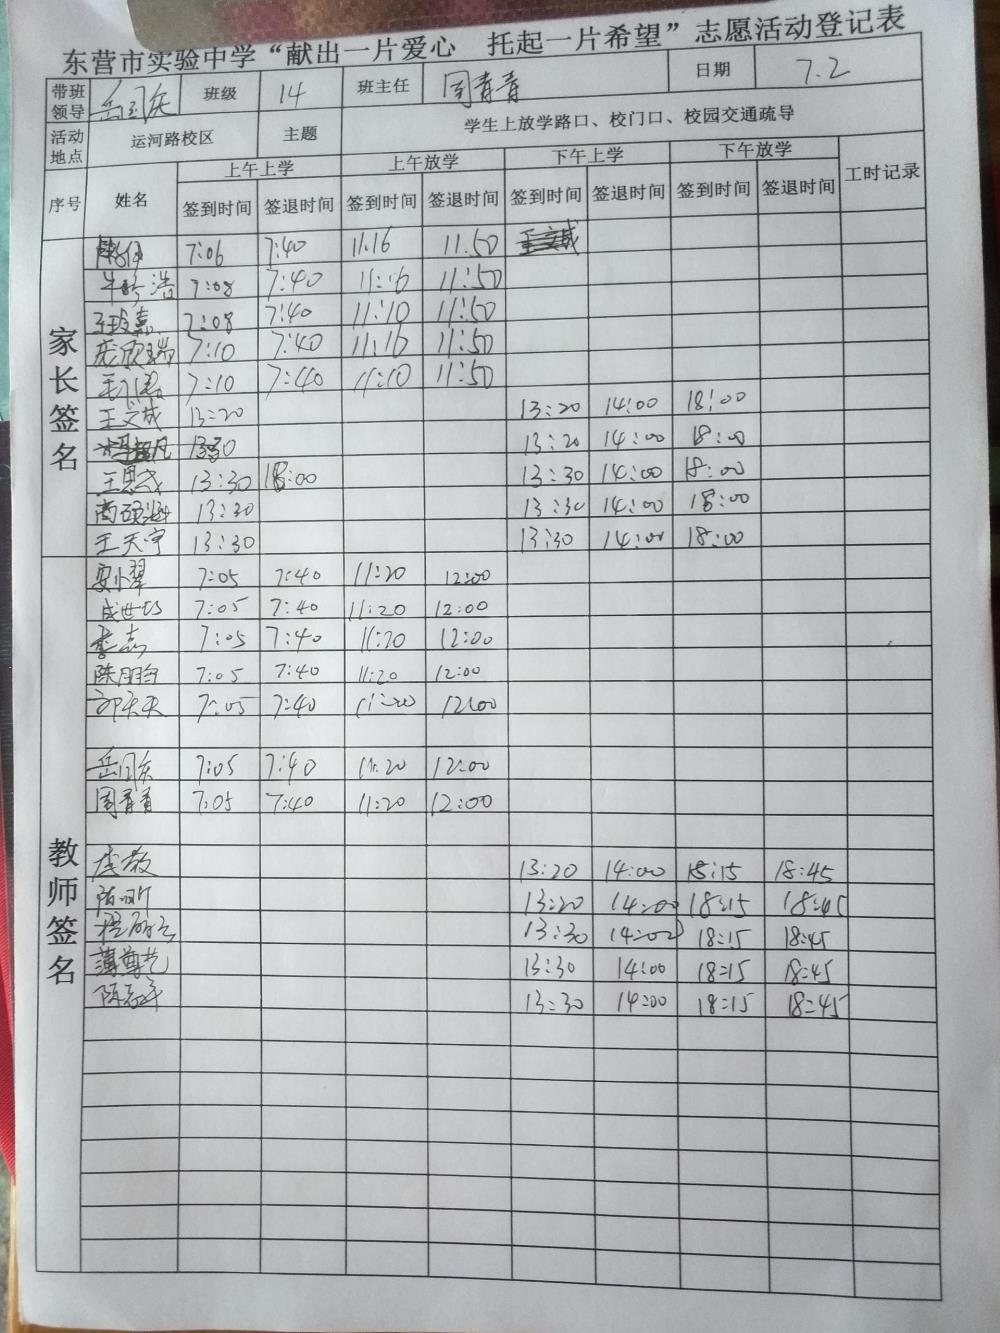 东营市实验中学“献出一片爱心 托起一片希望”志愿活动登记表
带班领导 岳国庆 班级 14 班主任 周青青 日期 7.2
活动地点 运河路校区 主题 学生上放学路口、校门口、校园交通疏导
序号 姓名 上午上学 上午放学 下午上学 下午放学 工时记录
签到时间 签退时间 签到时间 签退时间 签到时间 签退时间 签到时间 签退时间
家长签名
7:06 7:40 11.16 11.50 王文成
7:08 7:40 11:16 11:50
7:08 7:40 11:10 11:50
7:10 7:40 11:16 11:50
7:10 7:40 11:10 11:50
王文成 13:20 13:20 14:00 18:00
13:20 14:00 18:00
王思成 13:30 18:00 13:30 14:00 18:00
13:30 13:30 14:00 18:00
王天宇 13:30 13:30 14:00 18:00
教师签名
安小翠 7:05 7:40 11:20 12:00
7:05 7:40 11:20 12:00
李志 7:05 7:40 11:20 12:00
陈朋 7:05 7:40 11:20 12:00
7:05 7:40 11:20 12:00
岳国庆 7:05 7:40 11:20 12:00
周青青 7:05 7:40 11:20 12:00
13:20 14:00 18:15 18:45
13:20 14:00 18:15 18:45
13:30 14:00 18:15 18:45
薄尊艺 13:30 14:00 18:15 18:45
13:30 14:00 18:15 18:45